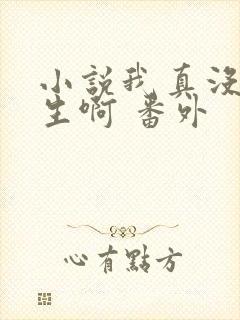 小說我真没
生啊 番外
心有點方